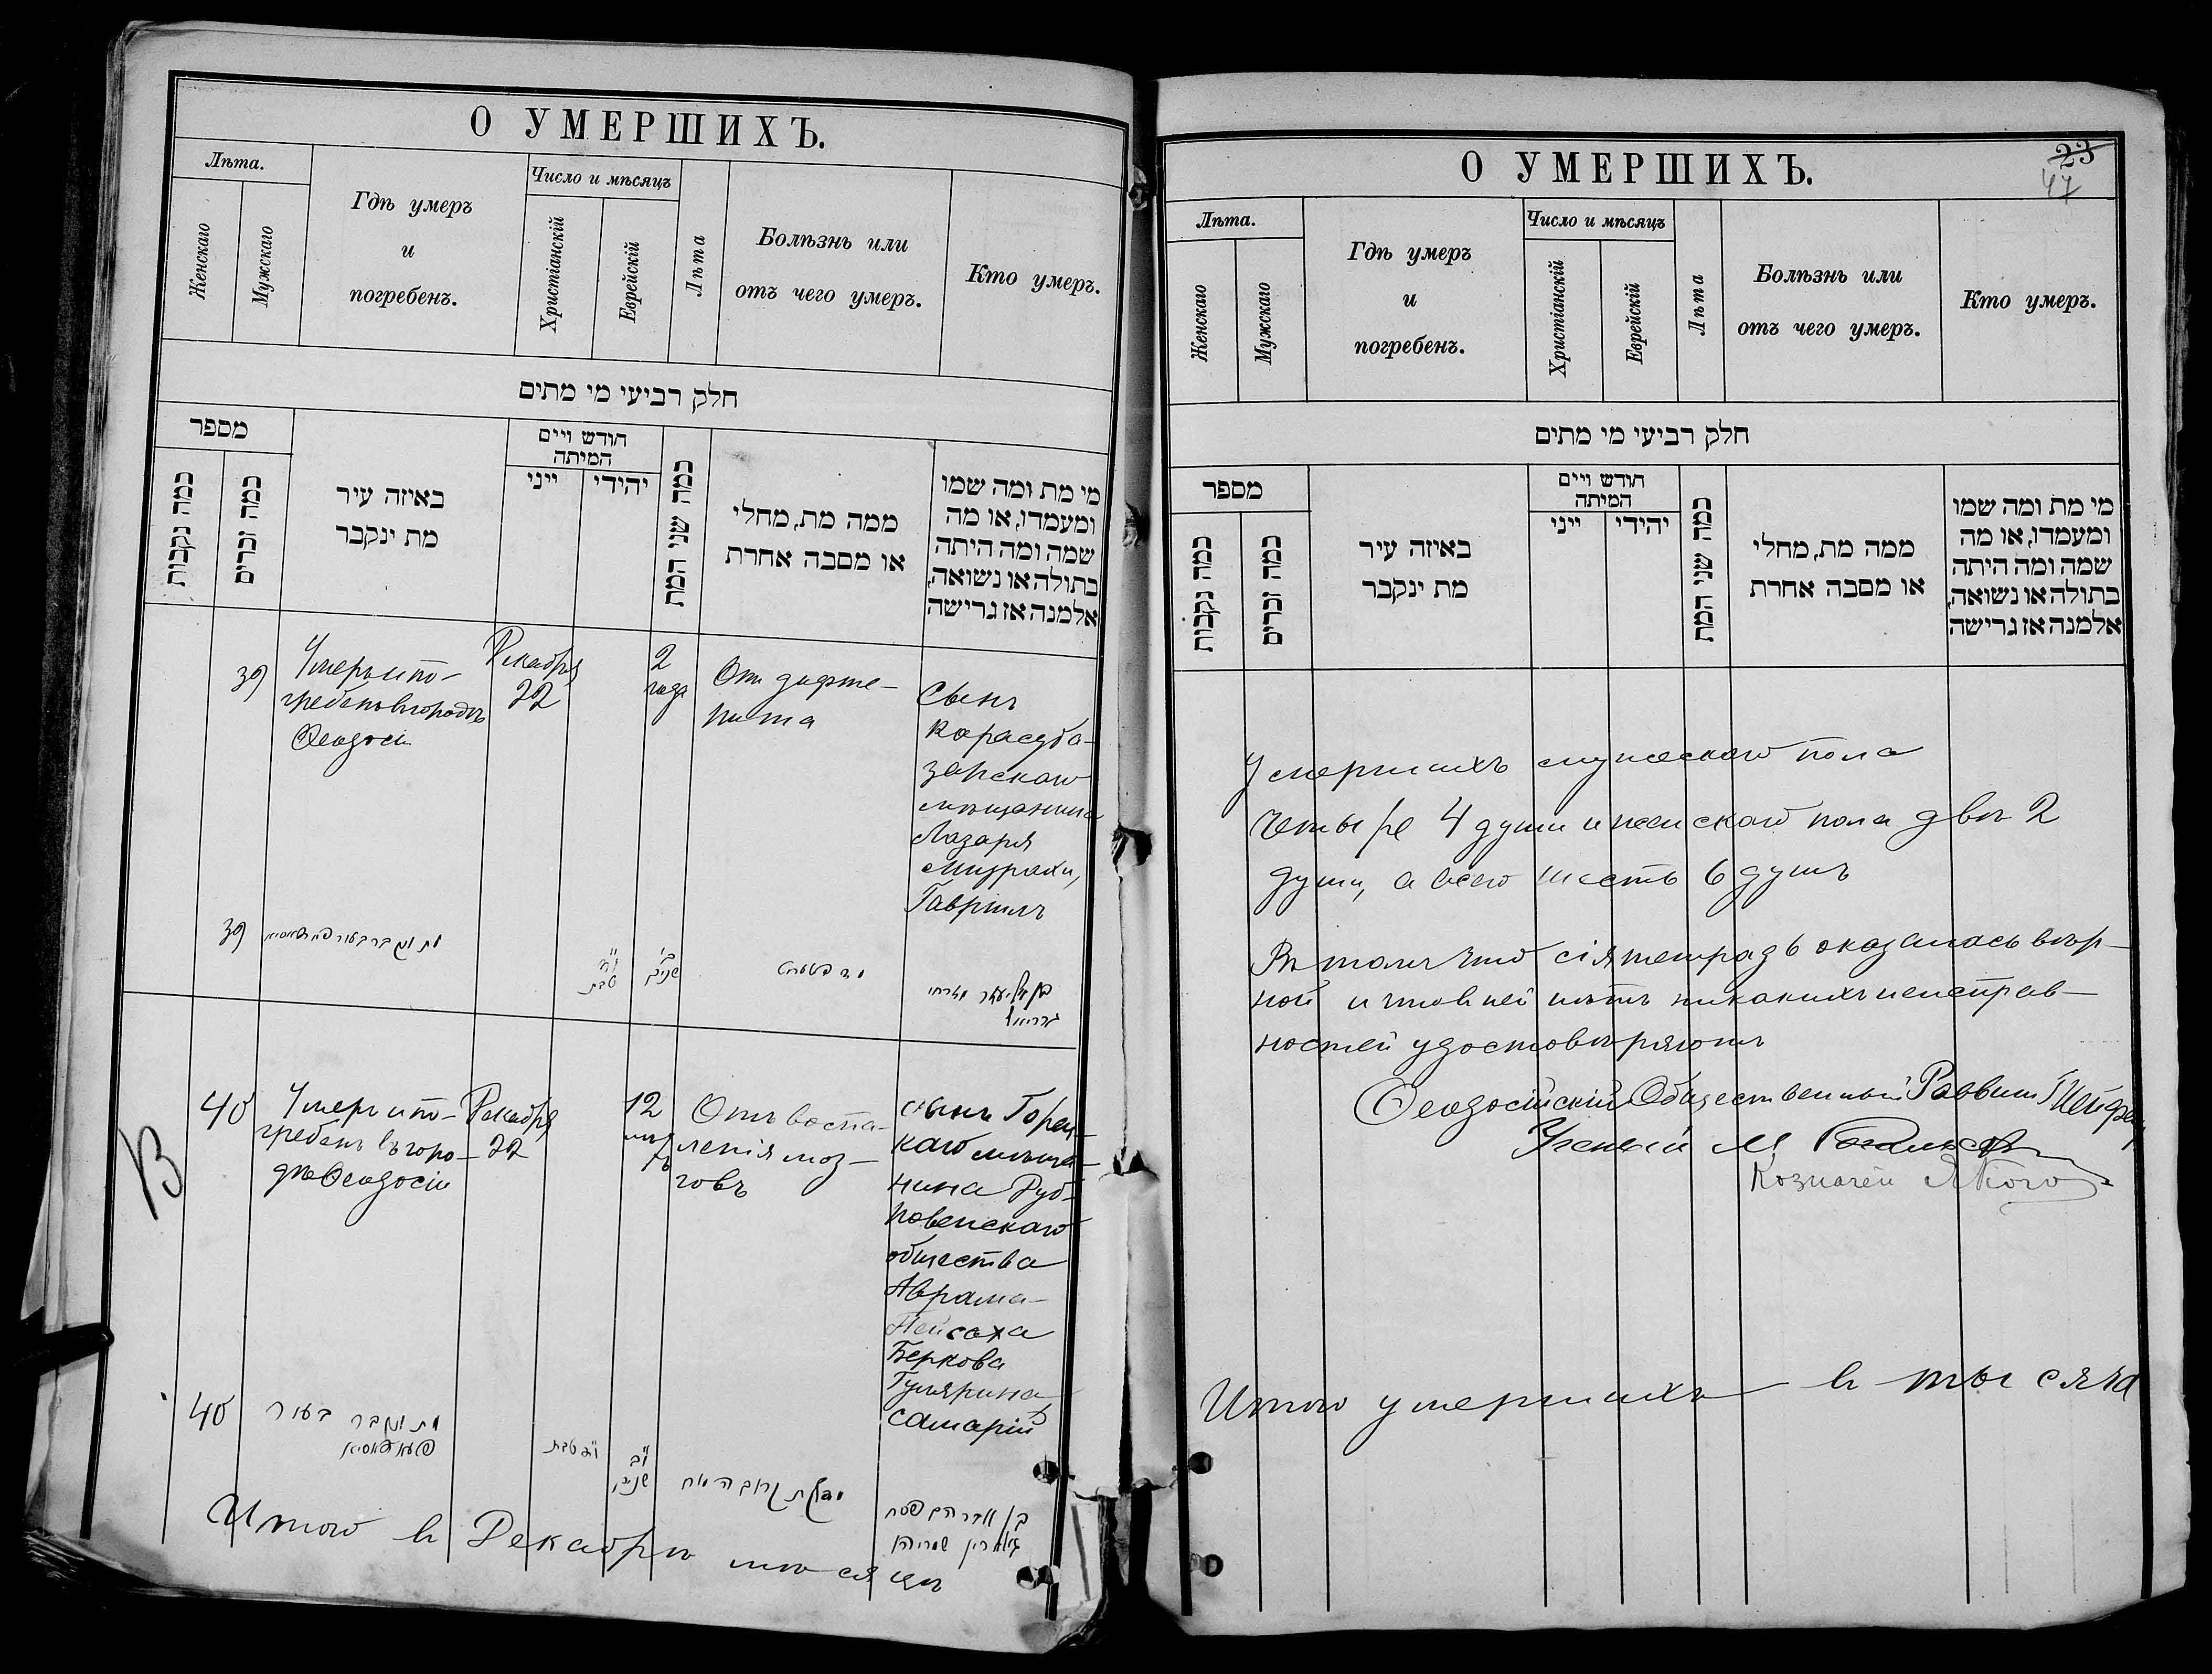 О УМЕРШИХЪ.
Лѣта.
Женскаго
Мужскаго
Гдѣ умеръ
и
погребенъ.
Число и мѣсяцъ
Христіанскій
Еврейскій
Лѣта
Болѣзнь или
отъ чего умеръ.
Кто умеръ.
חלק רביעי מי מתים
מספר
כמה נקבות
כמה זכרים
באיזה עיר
מת ינקבר
חודש ויים
המיתה
ייני
יהידי
כמה שני המת
ממה מת, מחלי
או מסבה אחרת
מי מת ומה שמו
ומעמדו, או מה
שמה ומה היתה
בתולה או נשואה,
אלמנה אז גרישה
39
Умеръ и по-
гребенъ въ городѣ
Ѳеодосіи
Декабря
22
2
года
От дифте-
рита
Сынъ
Карасуба-
зарскаго
мѣщанина
Лазаря
Мизрахи,
Гавріилъ
39
מת ונקבר בעיר
י"ד
טבת
ב'
שנים
בן אליעזר מזרחי
גבריאל
40
Умеръ и по-
гребенъ въ горо-
дѣ Ѳеодосіи
Декабря
22
12
лѣтъ
Отъ воспа-
ленія моз-
говъ
сынъ Горец-
каго мѣща-
нина
общества
Аврама-
Пейсаха
Беркова
Самарій
40
מת ונקבר בעיר
י"ד טבת
י"ב
שנים
דלקת קרום המוח
בן אברהם פסח
שמריהו
Итого въ Декабрѣ мѣсяцѣ
О УМЕРШИХЪ.
23
47
Лѣта.
Женскаго
Мужскаго
Гдѣ умеръ
и
погребенъ.
Число и мѣсяцъ
Христіанскій
Еврейскій
Лѣта
Болѣзнь или
отъ чего умеръ.
Кто умеръ.
חלק רביעי מי מתים
מספר
כמה נקבות
כמה זכרים
באיזה עיר
מת ינקבר
חודש ויים
המיתה
ייני
יהידי
כמה שני המת
ממה מת, מחלי
או מסבה אחרת
מי מת ומה שמו
ומעמדו, או מה
שמה ומה היתה
בתולה או נשואה,
אלמנה אז גרישה
Умершихъ мужескаго пола
четыре 4 души и женскаго пола двѣ 2
души, а всего шесть 6 душъ
Въ томъ что сія тетрадь оказалась вѣр-
ной и что в ней нѣтъ никакихъ неисправ-
ностей удостовѣряютъ
Ѳеодосійскій Общественный Раввинъ
Ученый М.
Козначей
Итого умершихъ в тысяча